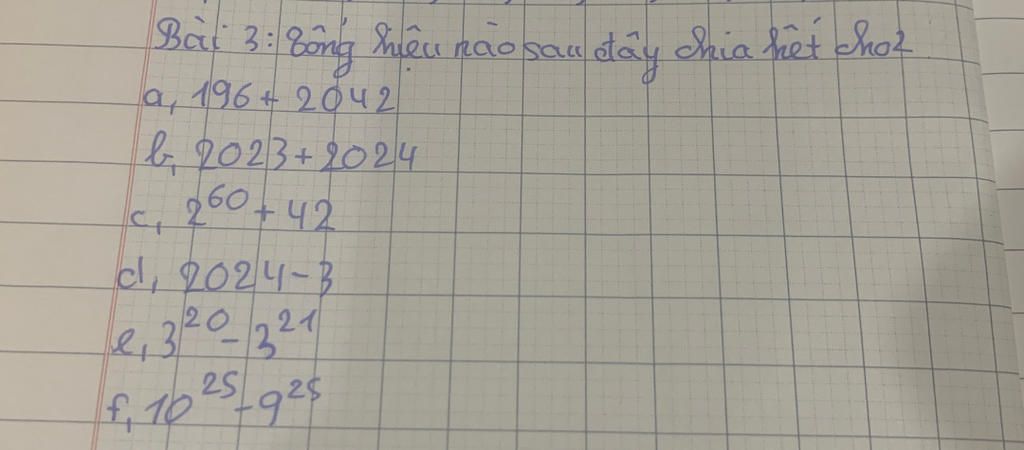 Bài 3: Tổng hiệu nào sau đây chia hết cho 2
a, 196 + 2042
b, 2023 + 2024
c, 2^60 + 42
d, 2024 - 3
e, 3^20 - 3^21
f, 10^25 - 9^25